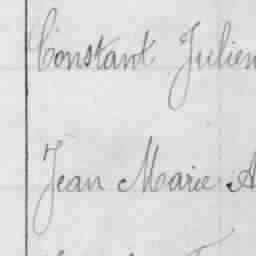 Constant Julien
Jean Marie A